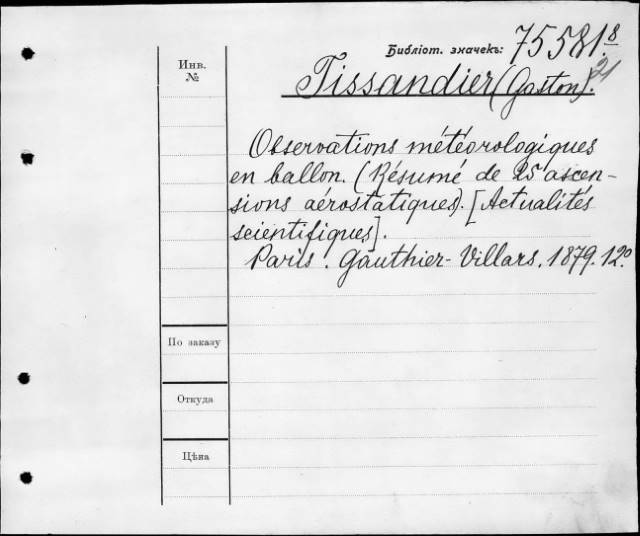 Библіот. значекъ: 75581.8
21
Инв.
№
Tissandier (Gaston).
Observations météorologiques
en ballon. (Résumé de 25 ascen-
sions aérostatiques). [Actualités
scientifiques].
Paris. Gauthier-Villars. 1879. 12º
По заказу
Откуда
Цѣна